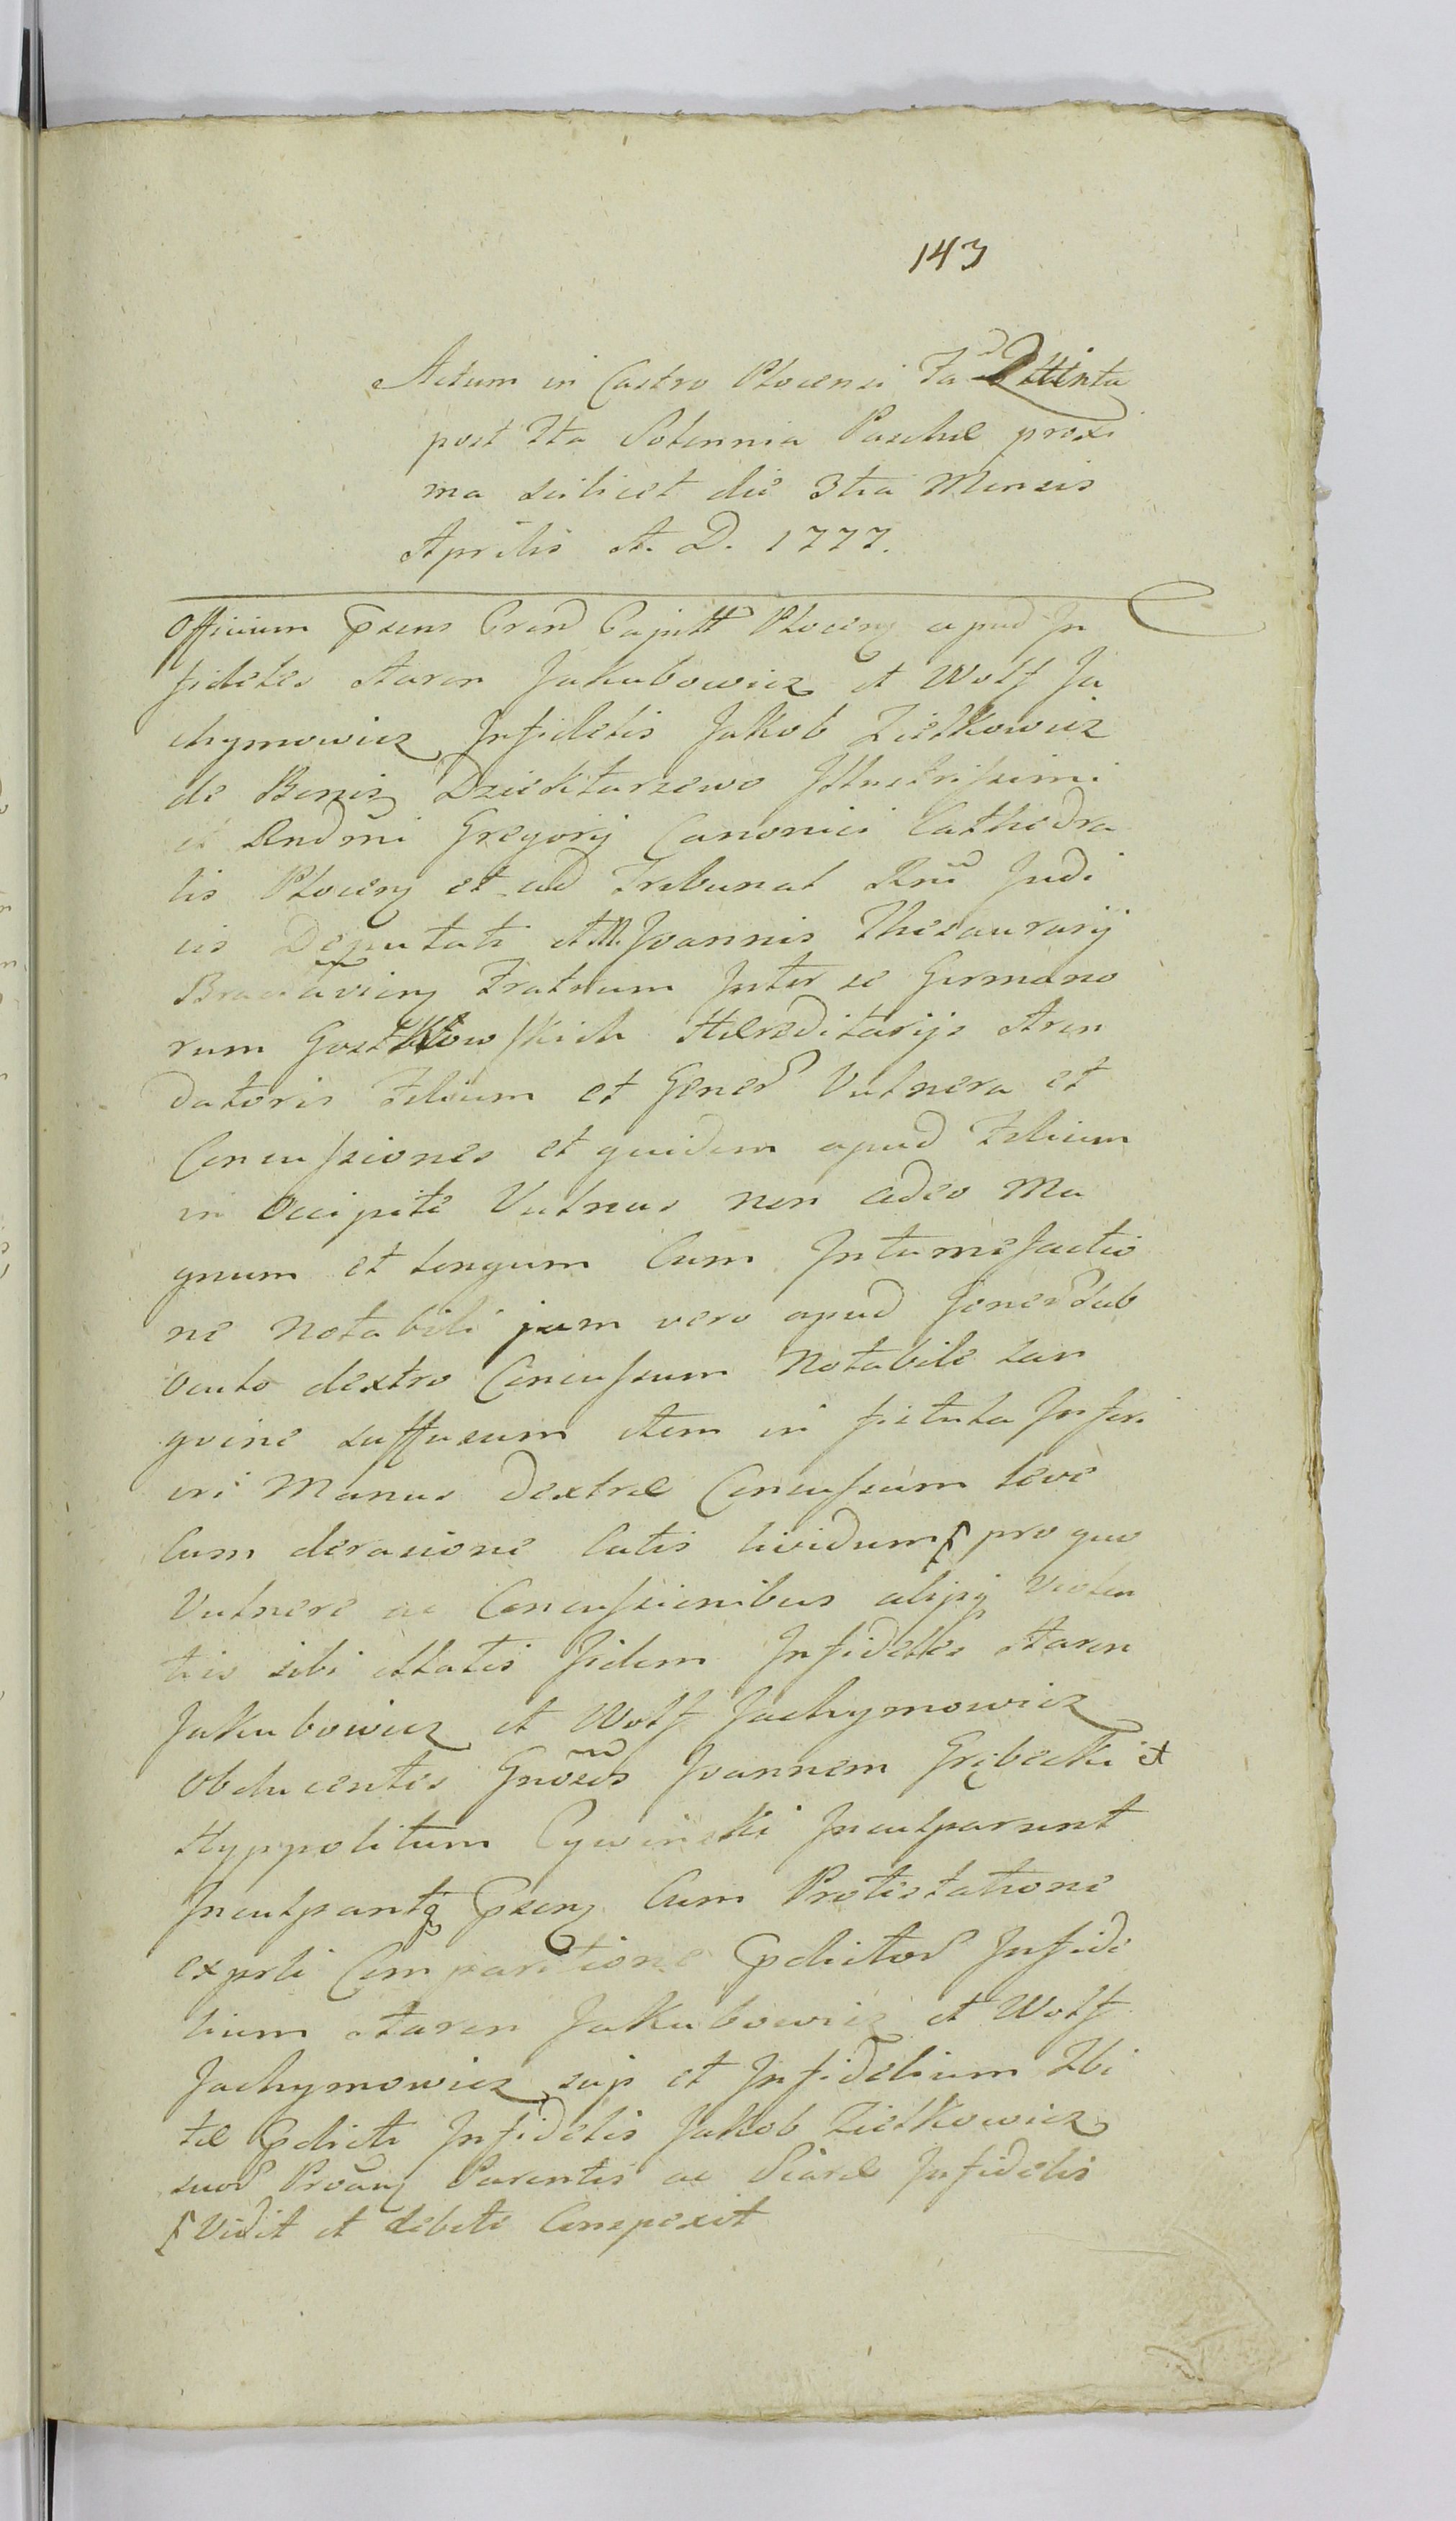 143
Actum in Castro Plocensi Fa Quinta
post Fta Solennia Paschæ proxi
ma scilicet die 3tia Mensis
Aprilis A. D. 1777.
Officium Gsens Crend Capitt Plocens apud In
fideles Aaron Jakubowicz et Wolf Ja
chymowicz Infidelis Jakob Ziełkowicz
de Bonis Dziektarzewo Illustrissimi
et Rndmi Gregorij Canonici Cathedra
lis Plocens et ad Tribunal Rni Judi
cis Deputati et M. Joannis Thesaurarij
Braclaviens Fratrum Inter se Germano
rum Gostkowskich Hæreditarijs Aren
datoris Filium et Gener Vulnera et
Concussiones et quidem apud Filium
in Occipite Vulnus non adeo Ma
gnum et longum Cum Intumefactio
ne Notabili jam vero apud Gener Sub
Oculo dextro Concussum Notabile san
gvine suffusum item in fistula Inferi
ori Manus Dextræ Concussum leve
Cum derasione Cutis lividum pro quo
Vulnere ac Concussionibus alijsq Violen
tis sibi illatis Fidem Infideles Aaron
Jakubowicz et Wolf Jachymowicz
Obducentes Gnosos Joannem Grębecki et
Hyppolitum Cywinski Inculparunt
Inculpantq Gsens Cum Protestatione
exprti Comparitione Gdictor Infide
lium Aaron Jakubowicz et Wolf
Jachymowicz sup et Infidelium Ibi
tæ Gdicti Infidelis Jakob Ziełkowicz
suor Proang Parentis ac Infidelis
Vidit et debite Conspexit